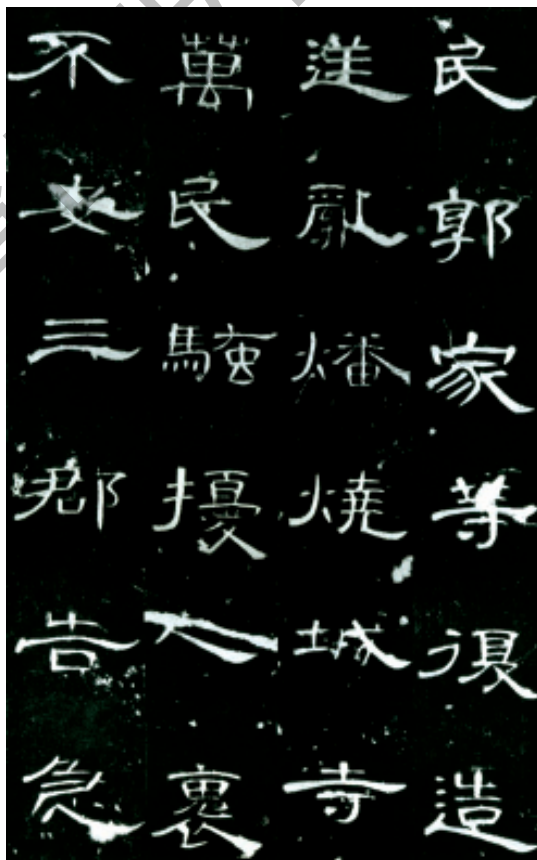 民郭家等復造
逆亂燔燒城寺
萬民騷擾人裹
不安三郡告急